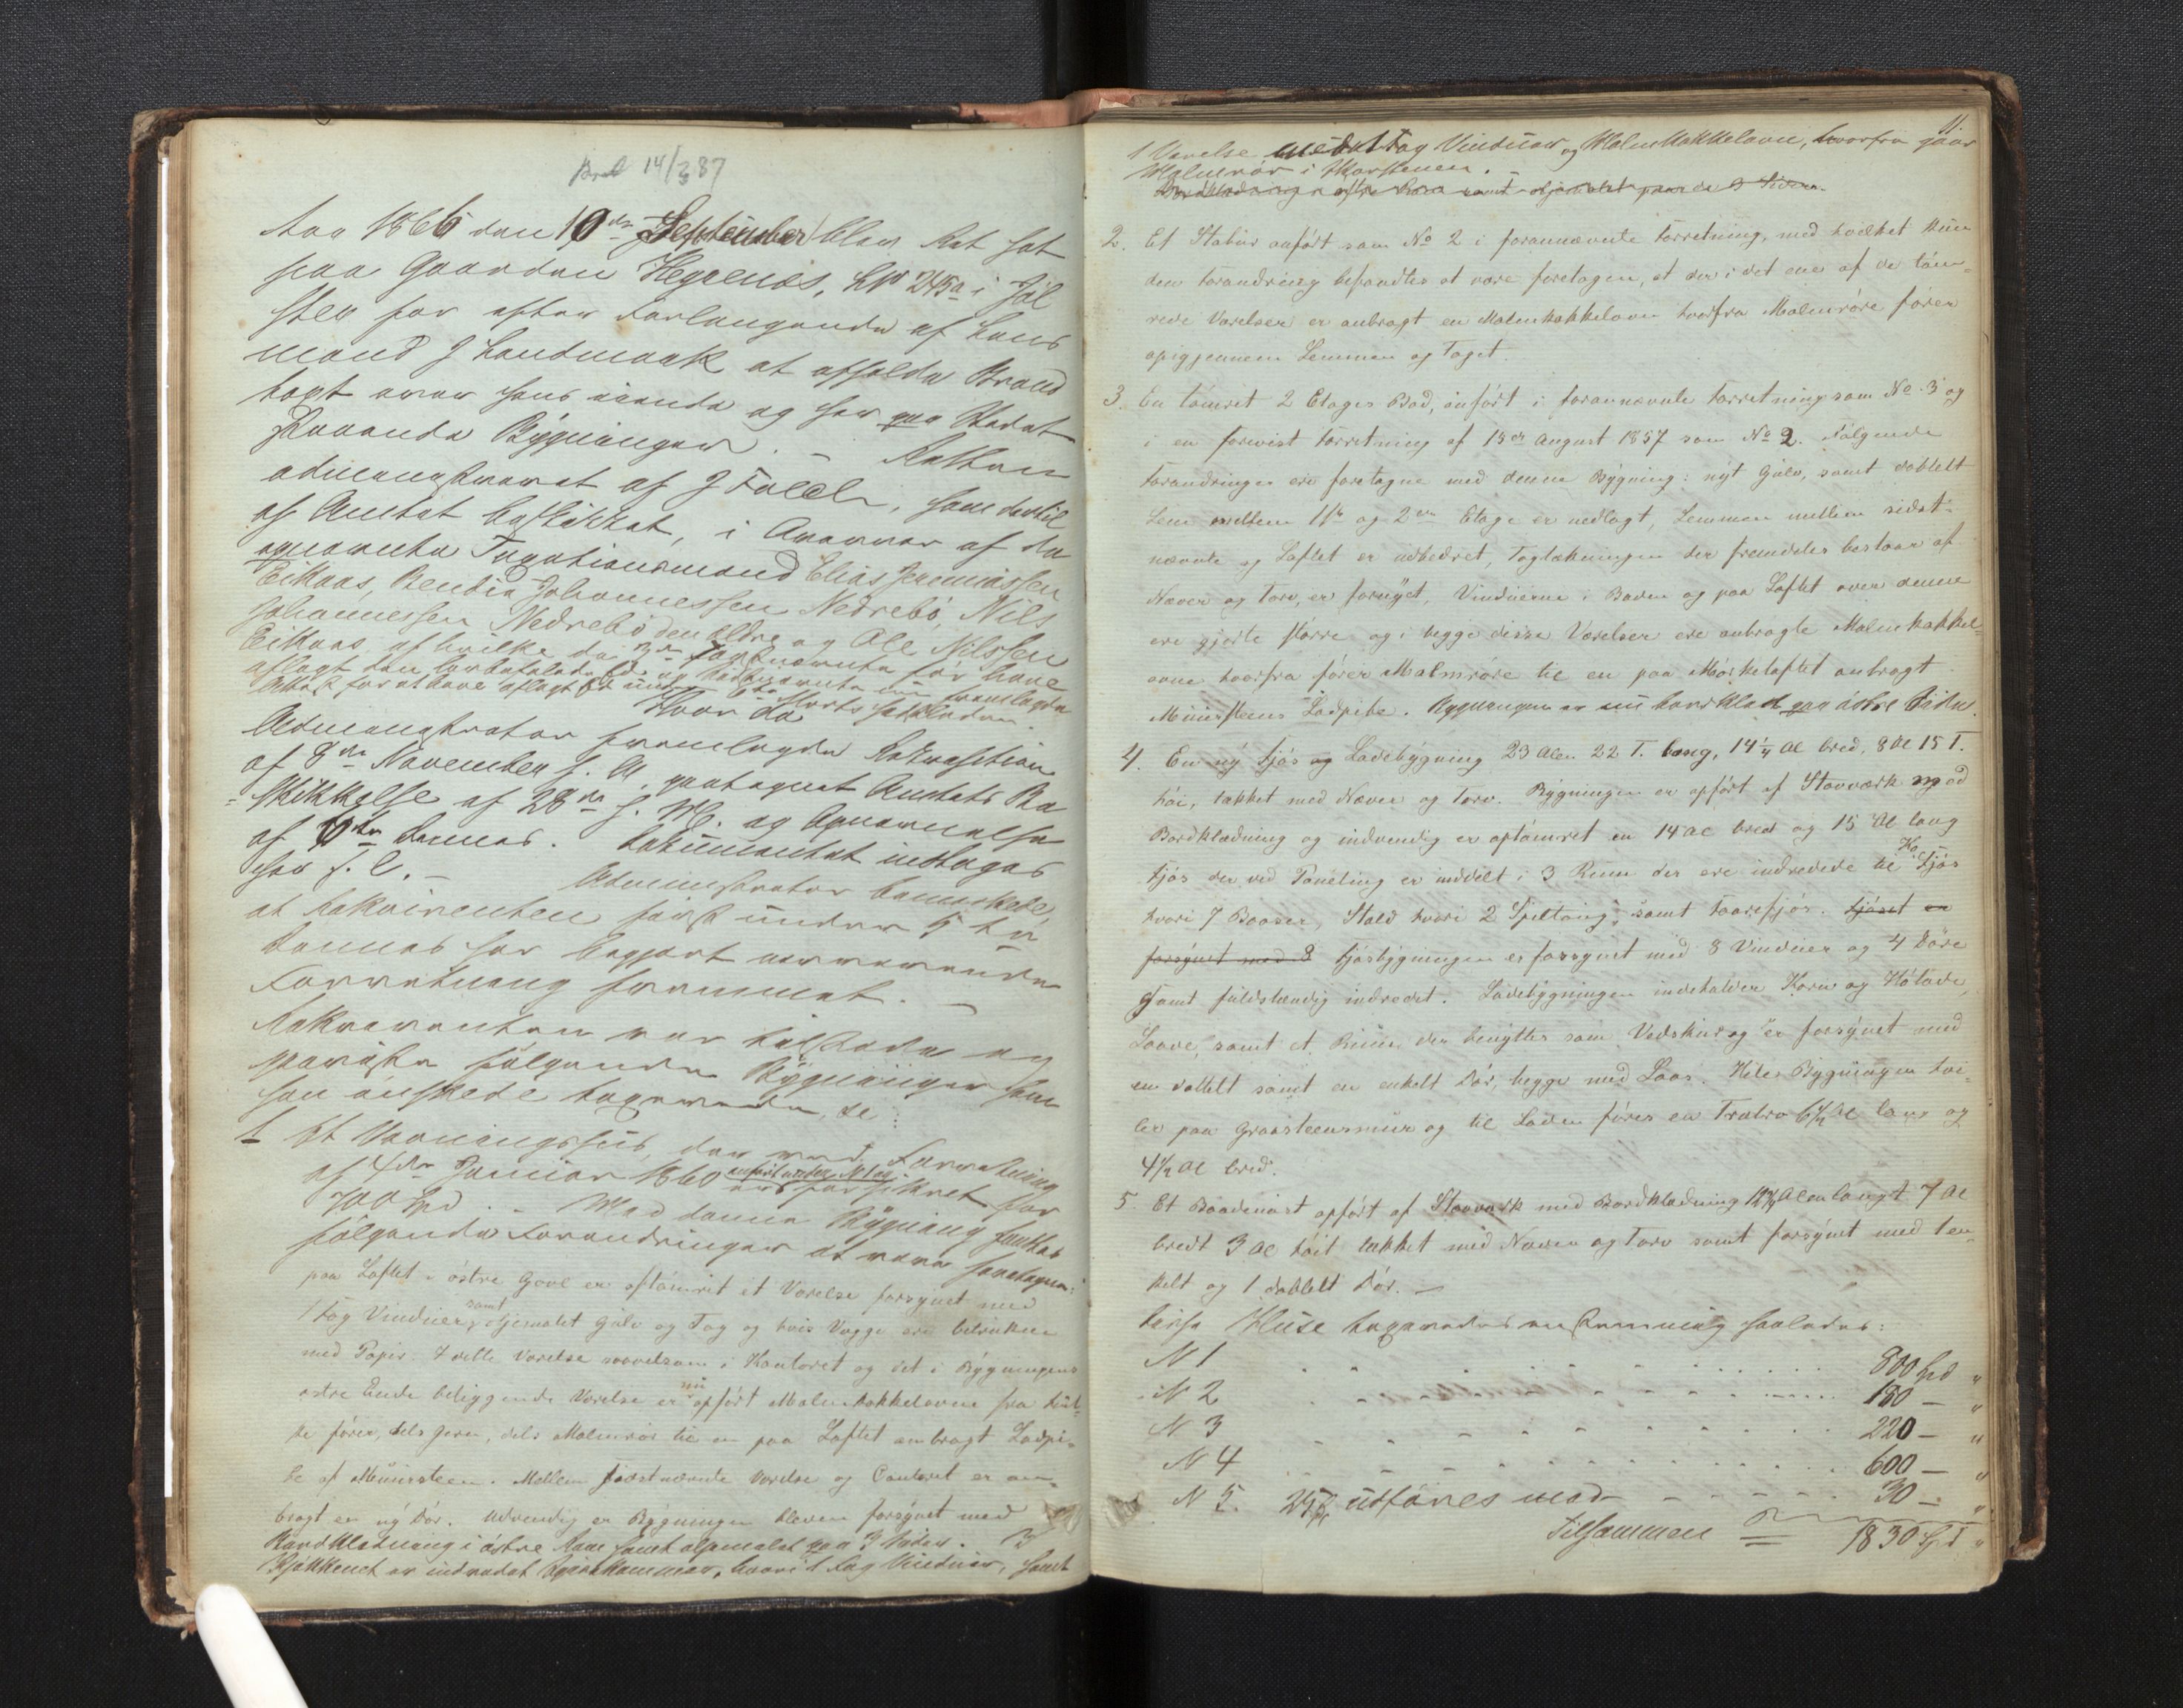 14/3 87
Aar 1866 den 10de September blev Ret sat
paa Gaarden Hegrenæs, LN 245a i Jøl
ster for efter Forlangende af Lens
mand J Landmark at afholde Brand
taxt over hans eiende og her paa Stedet
staaende Bygninger. – Retten
administreret af J Falch, som dertil
af Amtet beskikket, i Overvær af de
opnævnte Taxationsmænd Elias Jeremiassen
Eikaas, Bendix Johannessen Nedrebø, Nils
Johannessen Nedrebø den ældre og Ole Nilssen
Eikaas, af hvilke de 3de førstnævnte før have
aflagt den lovbefalede Ed og sidstnævnte nu fremlagde
Attest for at have aflagt Ed
Hvor da
Administrator fremlagde Rekvisition
af 8de November f. A. paategnet Amtets Be
skikkelse af 28de s. M. og Opnævnelse
af 6te dennes. Dokumentet indtages
her s. l. –
Administrator bemærkede,
at Rekvirenten først under 5te
dennes har begjært nærværende
Forretning fremmet. –
Rekvirenten var tilstede og
paaviste følgende Bygninger som
han ønskede taxerede, de:
1 Et Vaaningshus, der ved Forretning
af 4de Januar 1860 anført under N 1 og
er forsikret for
700 Spd. – Med denne Bygning fandtes
følgende Forandringer at være foretagne:
paa Loftet i østre Gavl er optømret et Værelse forsynet med
1 Fag Vinduer, samt oljemalet Gulv og Tag og hvis Vægge ere betrukne
med Papir. I dette Værelse saavelsom i Kontoret og det i Bygningens
østre Ende beliggende Værelse er nu opført Malmkakkelovne fra hvil-
ke fører, dels Jern, dels Malmrør til en paa Loftet anbragt Ladpi-
be af Muursteen. Mellem sidstnævnte Værelse og Contoret er an-
bragt en ny Dør. Udvendig er Bygningen bleven forsynet med
Bordklædning i østre Ende samt oljemalet paa 3 Sider. I
Kjøkkenet er indredet Spisekammer, hvori 1 Fag Vinduer, samt
11.
1 Værelse med 1 Fag Vinduer og Malmkakkelovn, hvorfra gaar
Malmrør i Skorstenen. –
Bordklædning i østre Ende samt oljemalet paa de 3 Sider.
2. Et Stabur anført som No 2 i forannævnte Forretning, med hvilket kun
den Forandring befandtes at være foretagen, at der i det ene af de tøm-
rede Værelser er anbragt en Malmkakkelovn hvorfra Malmrøre fører
opigjennem Lemmen og Taget.
3. En tømret 2 Etages Bod, anført i forannævnte Forretning som No 3 og
i en forevist Forretning af 18de August 1857 som No 2. Følgende
Forandringer ere foretagne med denne Bygning: nyt Gulv, samt dobbelt
Lem mellem 1ste og 2den Etage er nedlagt, Lemmen mellem sidst-
nævnte og Loftet er udbedret, Tagtækningen der fremdeles bestaar af
Næver og Torv, er fornyet, Vinduerne i Boden og paa Loftet over denne
ere gjorte større og i begge disse Værelser ere anbragte Malmkakkel-
ovne hvorfra fører Malmrøre til en paa Mørkeloftet anbragt
Muursteens Ladpibe. Bygningen er nu bordklæd paa østre Side.
4. En ny Fjøs og Ladebygning 23 Alen 22 T. lang, 14 1/4 Al bred, 8 Al 15 T.
høi, tækket med Næver og Torv. Bygningen er opført af Stavværk med
Bordklædning og indvendig er optømret en 14 Al bred og 15 Al lang
Fjøs der ved Paneling er inddelt i 3 Rum der ere indredede til Ko Fjøs
hvori 7 Baaser, Stald hvori 2 Spiltoug, samt Faarefjøs. Fjøset er
forsynet med 8 Fjøsbygningen er forsynet med 8 Vinduer og 4 Døre
samt fuldstændig indredet. Ladebygningen indeholder Korn og Hølade,
Laave, samt et Rum der benyttes som Vedskur og er forsynet med
en dobbelt samt en enkelt Dør, begge med Laas. Hele Bygningen hvi-
ler paa Graasteensmuur og til Laden føres en Træbro 6 1/2 Al lang og
4 1/2 Al bred.
5. Et Baadenøst opført af Stavværk med Bordklædning 12 1/2 Alen langt 7 Al
bredt 3 Al høit tækket med Næver og Torv samt forsynet med 1 en-
kelt og 1 dobbelt Dør. –
Disse Huse taxeredes saaledes:
N 1 800 Spd "
N 2 180 – "
N 3 220 – "
N 4 600 – "
N 5. udføres med 30 – "
Tilsammen 1830 Spd "